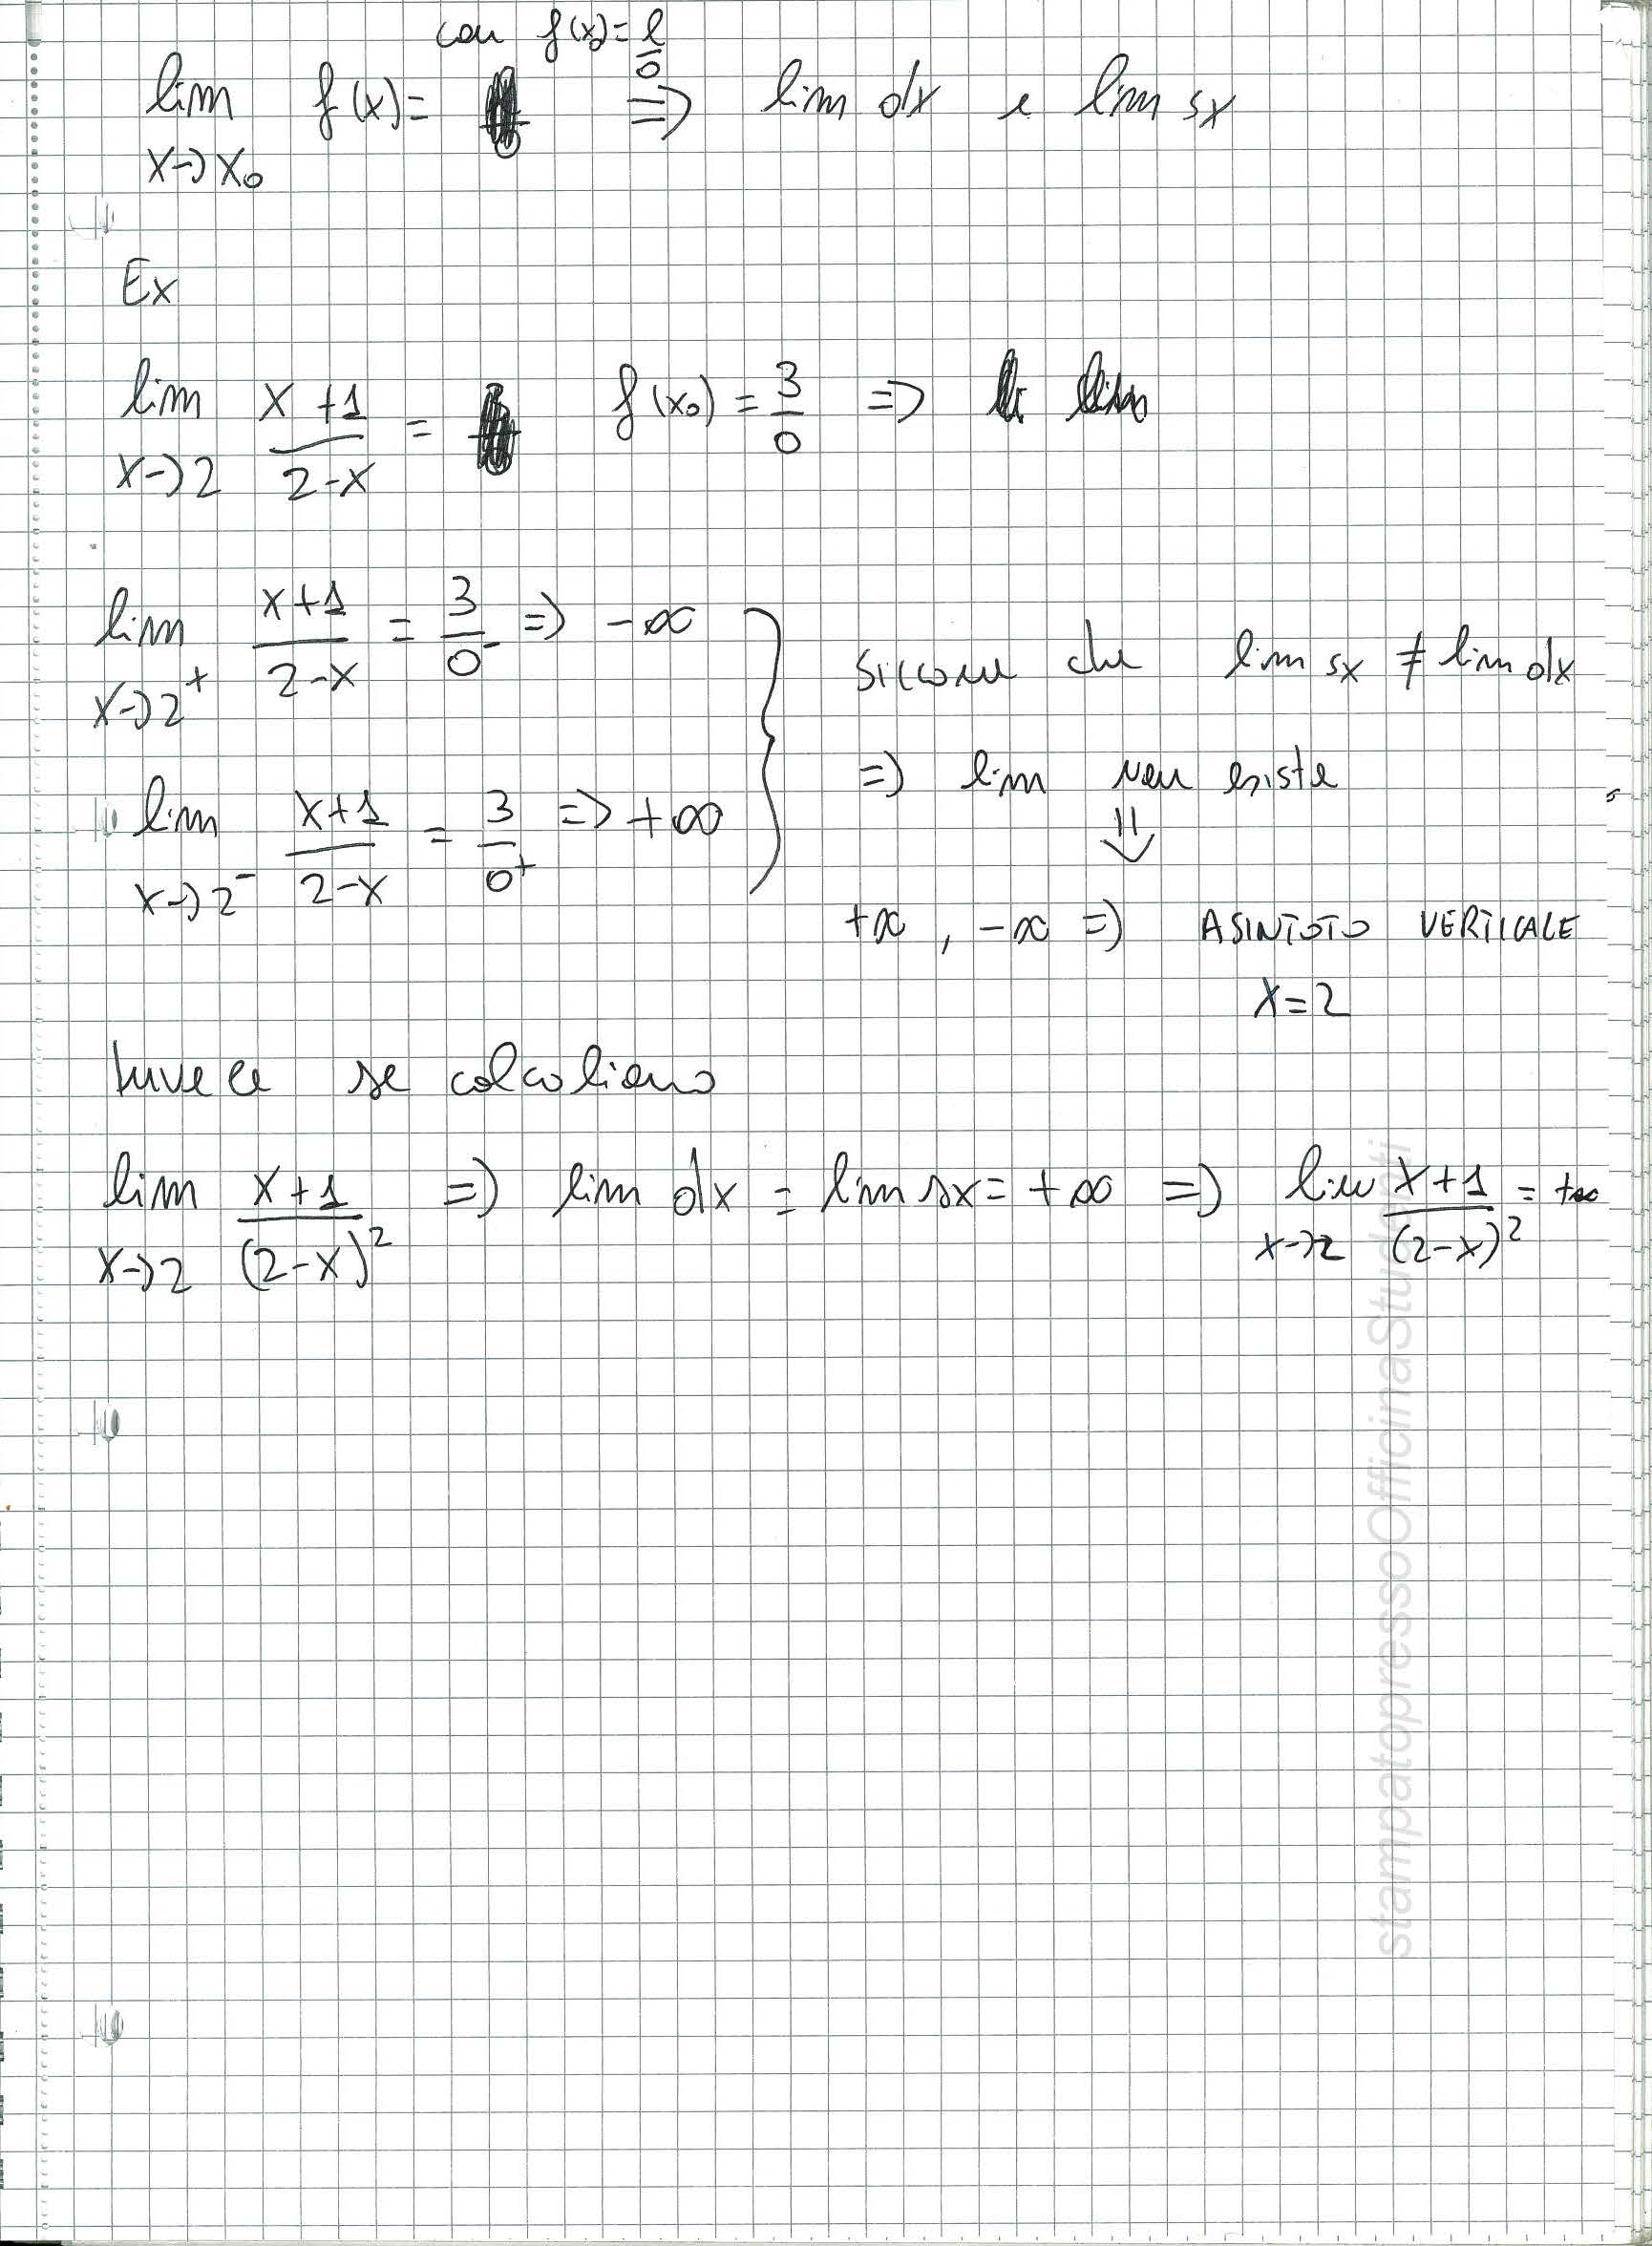 con f(x)= l/0
lim x→x₀ f(x)= ⇒ lim dx e lim sx
Ex
lim x→2 (x+1)/(2-x) = f(x₀) = 3/0 ⇒
lim x→2⁺ (x+1)/(2-x) = 3/0⁻ ⇒ -∞
siccome che lim sx ≠ lim dx
⇒ lim non esiste
⇓
lim x→2⁻ (x+1)/(2-x) = 3/0⁺ ⇒ +∞
+∞, -∞ ⇒ ASINTOTO VERTICALE
x=2
Invece se calcoliamo
lim x→2 (x+1)/(2-x)² ⇒ lim dx = lim sx = +∞ ⇒ lim x→2 (x+1)/(2-x)² = +∞
stampatopressoOfficinaStudenti